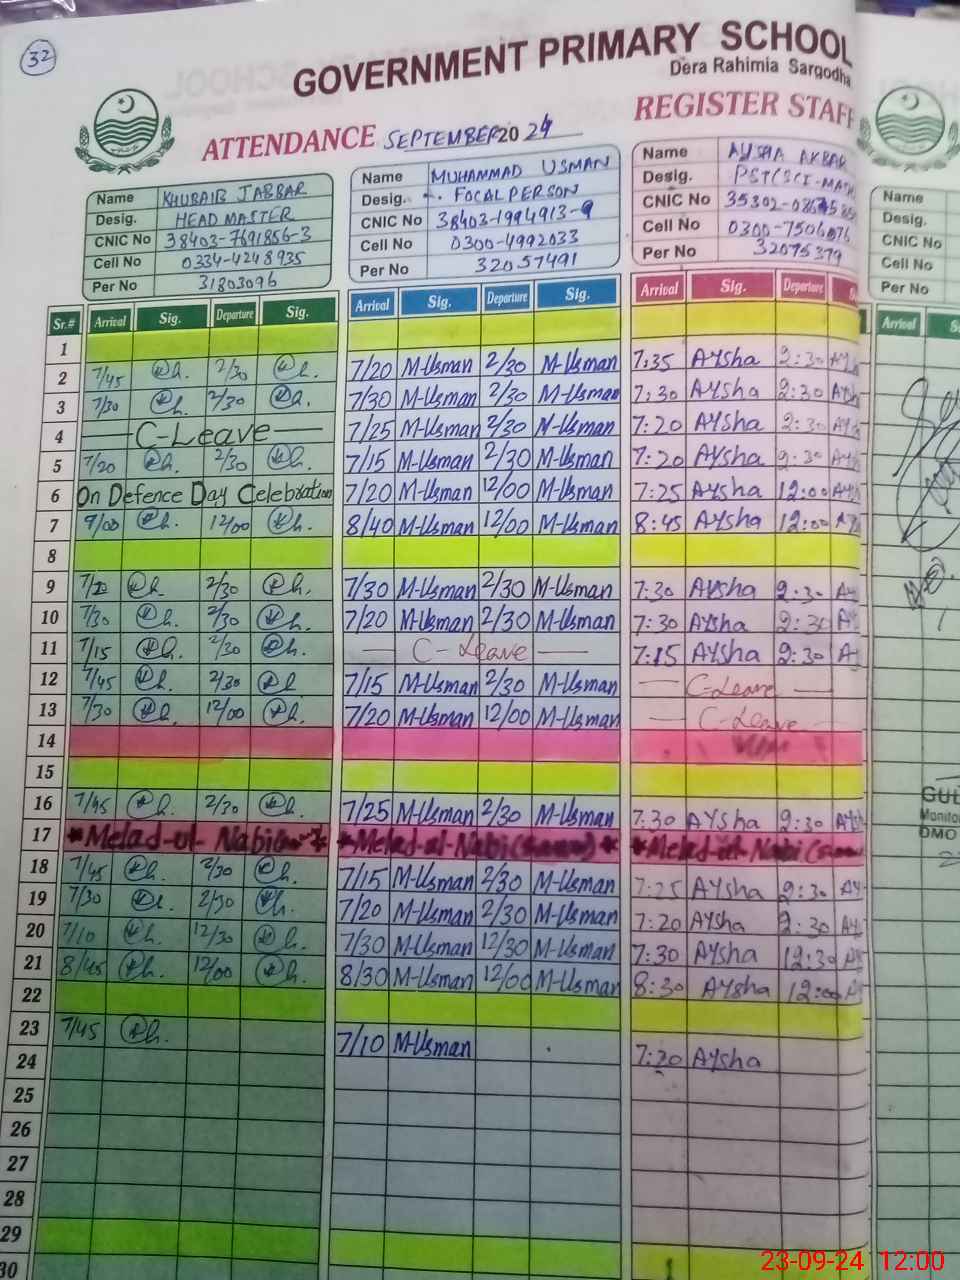 32
GOVERNMENT PRIMARY SCHOOL
Dera Rahimia Sargodha
ATTENDANCE SEPTEMBER 2024 REGISTER STAFF
Name KHUBAIB JABBAR
Desig. HEAD MASTER
CNIC No 38403-7691856-3
Cell No 0334-4248935
Per No 31803096
Name MUHAMMAD USMAN
Desig. FOCAL PERSON
CNIC No 38403-1994913-9
Cell No 0300-4992033
Per No 32057491
Name AYSHA AKBAR
Desig. PST(SCI-MATH
CNIC No 35302-
Cell No 0300-7506
Per No 32075379
Name
Desig.
CNIC No
Cell No
Per No
Sr.# Arrival Sig. Departure Sig. Arrival Sig. Departure Sig. Arrival Sig. Departure Arrival
1
2 7/45 2/30 7/20 M-Usman 2/30 M-Usman 7:35 AYSha 2:30
3 7/30 2/30 7/30 M-Usman 2/30 M-Usman 7:30 AYSha 2:30
4 C-Leave 7/25 M-Usman 2/30 M-Usman 7:20 AYSha 2:30
5 7/20 2/30 7/15 M-Usman 2/30 M-Usman 7:20 AYSha 2:30
6 On Defence Day Celebration 7/20 M-Usman 12/00 M-Usman 7:25 AYSha 12:00
7 9/00 12/00 8/40 M-Usman 12/00 M-Usman 8:45 AYSha 12:00
8
9 2/30 7/30 M-Usman 2/30 M-Usman 7:30 AYSha 2:30
10 7/30 2/30 7/20 M-Usman 2/30 M-Usman 7:30 AYSha 2:30
11 7/15 2/30 C-Leave 7:15 AYSha 2:30
12 7/45 2/30 7/15 M-Usman 2/30 M-Usman C-Leave
13 7/30 12/00 7/20 M-Usman 12/00 M-Usman C-Leave
14
15
16 7/45 2/30 7/25 M-Usman 2/30 M-Usman 7:30 AYSha 2:30
17 *Melad-ul-Nabi * *Melad-ul-Nabi * *Melad-ul-Nabi
18 7/45 2/30 7/15 M-Usman 2/30 M-Usman 7:25 AYSha 2:30
19 7/30 2/30 7/20 M-Usman 2/30 M-Usman 7:20 AYSha 2:30
20 7/10 12/30 7/30 M-Usman 12/30 M-Usman 7:30 AYSha 12:30
21 8/45 12/00 8/30 M-Usman 12/00 M-Usman 8:30 AYSha 12:00
22
23 7/45 7/10 M-Usman 7:20 AYSha
24
25
26
27
28
29
30
GUL
Monitor
DMO
23-09-24 12:00